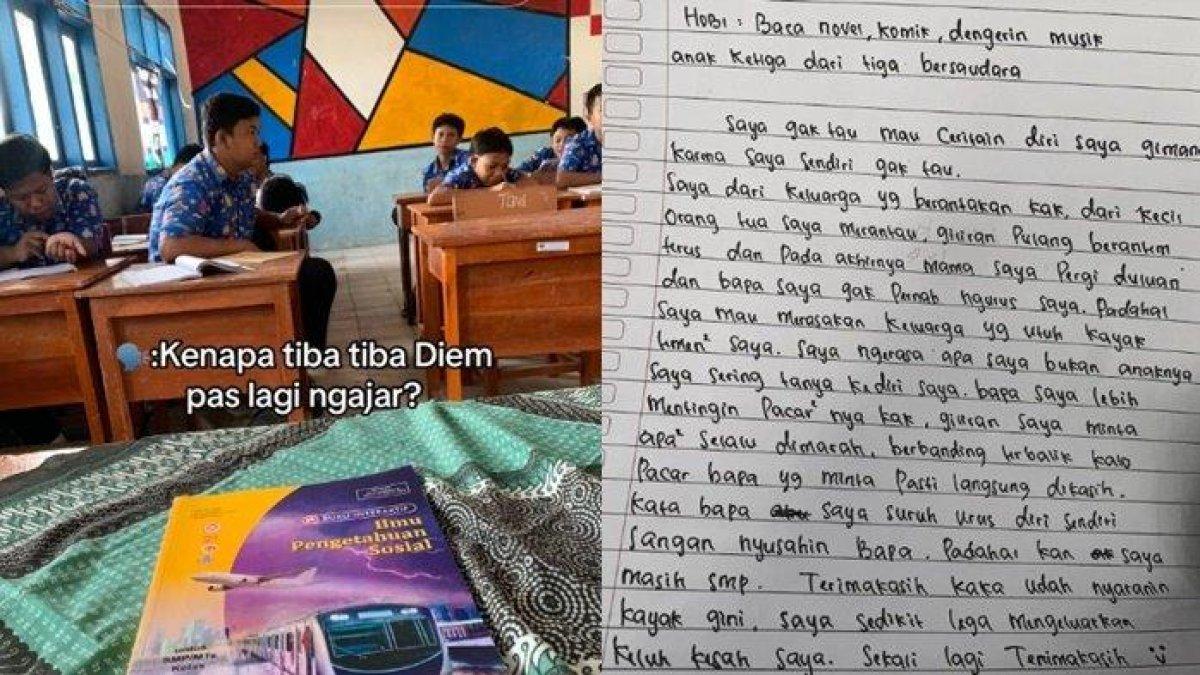 :Kenapa tiba tiba Diem
pas lagi ngajar?
BUKU INTERAKTIF
Ilmu
Pengetahuan
Sosial
untuk
SMP/MTs
Kelas
HOBI : Baca novel, komik, dengerin musik
anak Ketiga dari tiga bersaudara
Saya gak tau mau Ceritain diri saya giman
karna Saya Sendiri gak tau.
Saya dari Keluarga yg berantakan kak, dari kecil
Orang tua saya merantau, giliran Pulang berantem
terus dan Pada akhirnya Mama saya Pergi duluan
dan bapa saya gak Pernah ngurus saya. Padahal
Saya mau merasakan Keluarga yg utuh kayak
temen² saya. Saya ngerasa apa saya bukan anaknya
Saya Sering tanya kediri saya. bapa saya lebih
Mentingin Pacar² nya kak, giliran saya minta
apa² Selalu dimarah, berbanding terbalik kalo
Pacar bapa yg minta Pasti langsung dikasih.
Kata bapa saya suruh urus diri Sendiri
Jangan nyusahin Bapa. Padahal kan saya
masih smp. Terimakasih kaka udah nyaranin
kayak gini, saya sedikit lega mengeluarkan
Keluh kesah saya. Sekali lagi Terimakasih